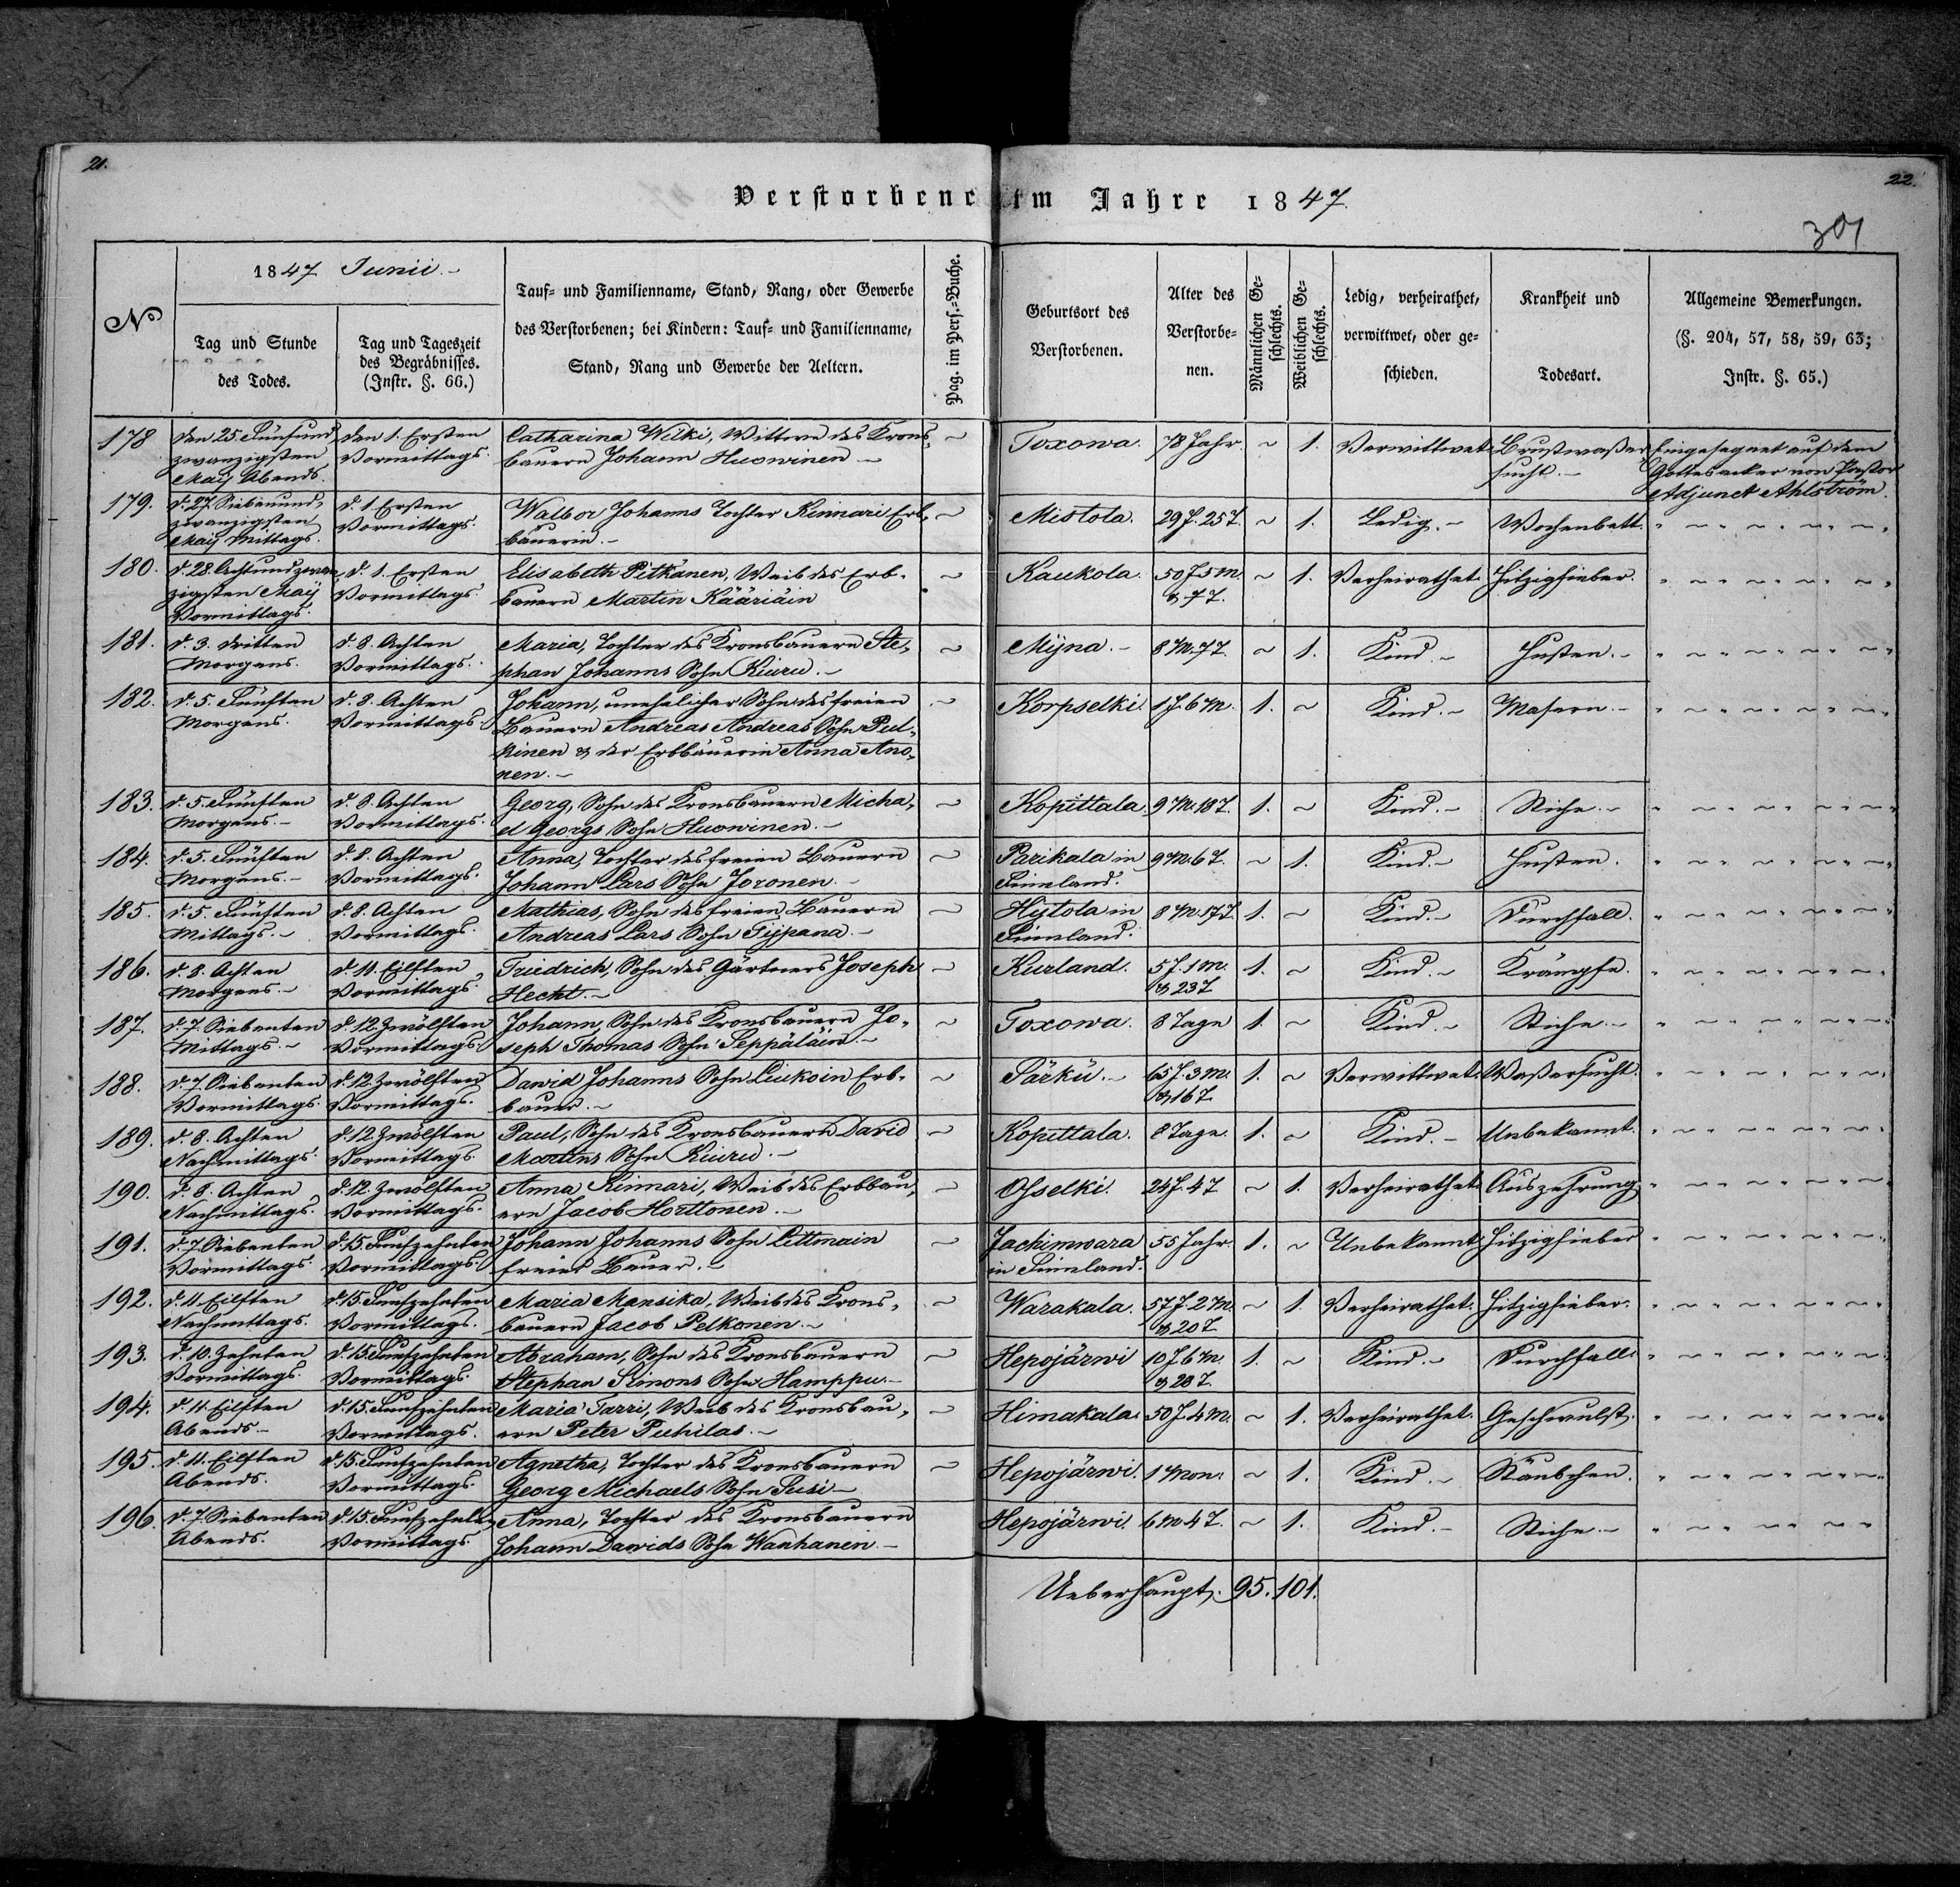 21.
22.
Verstorbene im Jahre 1847.
301
No
1847 Junii.
Tag und Stunde des Todes.
Tag und Tageszeit des Begräbnisses. (Instr. §. 66.)
Tauf- und Familienname, Stand, Rang, oder Gewerbe des Verstorbenen; bei Kindern: Tauf- und Familienname, Stand, Rang und Gewerbe der Aeltern.
Pag. im Pers.-Buche.
Geburtsort des Verstorbenen.
Alter des Verstorbe-nen.
Männlichen Ge-schlechts.
Weiblichen Ge-schlechts.
Ledig, verheirathet, verwittwet, oder ge-schieden.
Krankheit und Todesart.
Allgemeine Bemerkungen. (§. 204, 57, 58, 59, 63; Instr. §. 65.)
178 den 25. Fünfund zwanzigsten Maij Abends. den 1. Ersten Vormittags. Catharina Wilki, Wittwe des Krons-bauern Johann Huowinen Toxowa. 78 Jahr ~ 1. Verwittwet. Brustwaßer sucht. Eingesegnet auf dem Gottesacker von Pastor Adjunct Ahlström.
179. d. 27. Siebenund-zwanzigsten Maij Mittags. d. 1. Ersten Vormittags. Walbor Johanns Tochter Kinnari Erb-bäuerin. Mistola. 29 J. 25 T. ~ 1. Ledig. Wochenbett.
180. d. 28. Achtundzwan-zigsten Maij Vormittags. d. 1. Ersten Vormittags. Elisabeth Pitkänen, Weib des Erb-bauern Martin Kääriäin Kaukola. 50 J. 5 M. & 7 T. ~ 1. Verheirathet. Hitzigfieber.
181. d. 3. dritten Morgens. d. 8. Achten Vormittags. Maria, Tochter des Kronsbauern Ste-phan Johanns Sohn Kiuru. Mÿna. 8 M. 7 T. ~ 1. Kind. Husten.
182. d. 5. Fünften Morgens. d. 8. Achten Vormittags. Johann, unehelicher Sohn des freien Bauern Andreas Andreas Sohn Puk-kinen & der Erbbäuerin Anna Ano-nen. Korpselki. 1 J. 6 M. 1. ~ Kind. Masern.
183. d. 5. Fünften Morgens. d. 8. Achten Vormittags. Georg, Sohn des Kronsbauern Micha-el Georgs Sohn Huowinen. Kopittala. 9 M. 18 T. 1. ~ Kind. Stiche.
184. d. 5. Fünften Morgens. d. 8. Achten Vormittags. Anna, Tochter des freien Bauern Johann Lars Sohn Joronen. Parikala in Finnland. 9 M. 6 T. ~ 1. Kind. Husten.
185. d. 5. Fünften Mittags. d. 8. Achten Vormittags. Mathias, Sohn des freien Bauern Andreas Lars Sohn Tijpana. Hijtola in Finnland. 8 M. 17 T. 1. ~ Kind. Durchfall.
186. d. 8. Achten Morgens. d. 11. Eilften Vormittags. Friedrich, Sohn des Gärtners Joseph Hecht. Kurland. 5 J. 1 M. & 23 T. 1. ~ Kind. Krämpfe.
187. d. 7. Siebenten Mittags. d. 12. Zwölften Vormittags. Johann, Sohn des Kronsbauern Jo-seph Thomas Sohn Seppäläin. Toxowa. 8 Tage 1. ~ Kind. Stiche.
188. d. 7. Siebenten Vormittags. d. 12. Zwölften Vormittags. Dawid Johanns Sohn Liukoin Erb-bauer. Särkü. 65 J. 3 M. & 16 T. 1. ~ Verwittwet. Waßersucht.
189. d. 8. Achten Nachmittags. d. 12. Zwölften Vormittags. Paul, Sohn des Kronsbauern David Martins Sohn Kiuru. Kopittala. 8 Tage. 1. ~ Kind. Unbekannt.
190. d. 8. Achten Nachmittags. d. 12. Zwölften Vormittags. Anna Kinnari, Weib des Erbbau-ern Jacob Horttonen. Ohselki. 24 J. 4 T. ~ 1. Verheirathet. Auszehrung.
191. d. 7. Siebenten Vormittags. d. 15. Funfzehnten Vormittags. Johann Johanns Sohn Littmain freier Bauer. Jachimwara in Finnland. 55 Jahr. 1. ~ Unbekannt. Hitzigfieber
192. d. 11. Eilften Nachmittags. d. 15. Funfzehnten Vormittags. Maria Mansika, Weib des Krons-bauern Jacob Pelkonen. Warakala. 57 J. 2 M. & 20 T. ~ 1. Verheirathet. Hitzigfieber.
193. d. 10. Zehnten Vormittags. d. 15. Funfzehnten Vormittags. Abraham, Sohn des Kronsbauern Stephan Simons Sohn Hamppu. Hepojärwi 10 J. 6 M. & 28 T. 1. ~ Kind. Durchfall.
194. d. 11. Eilften Abends. d. 15. Funfzehnten Vormittags. Maria Tarri, Weib des Kronsbau-ern Peter Puhilas. Himakala. 50 J. 4 M. ~ 1. Verheirathet. Geschwulst.
195. d. 11. Eilften Abends. d. 15. Funfzehnten Vormittags. Agnetha, Tochter des Kronsbauern Georg Michaels Sohn Susi Hepojärwi. 1 Mon. ~ 1. Kind.
196. d. 7. Siebenten Abends. d. 15. Funfzehnten Vormittags. Anna, Tochter des Kronsbauern Johann Dawids Sohn Wanhanen. Hepojärwi. 6 M. 4 T. ~ 1. Kind. Stiche.
Ueberhaupt. 95. 101.